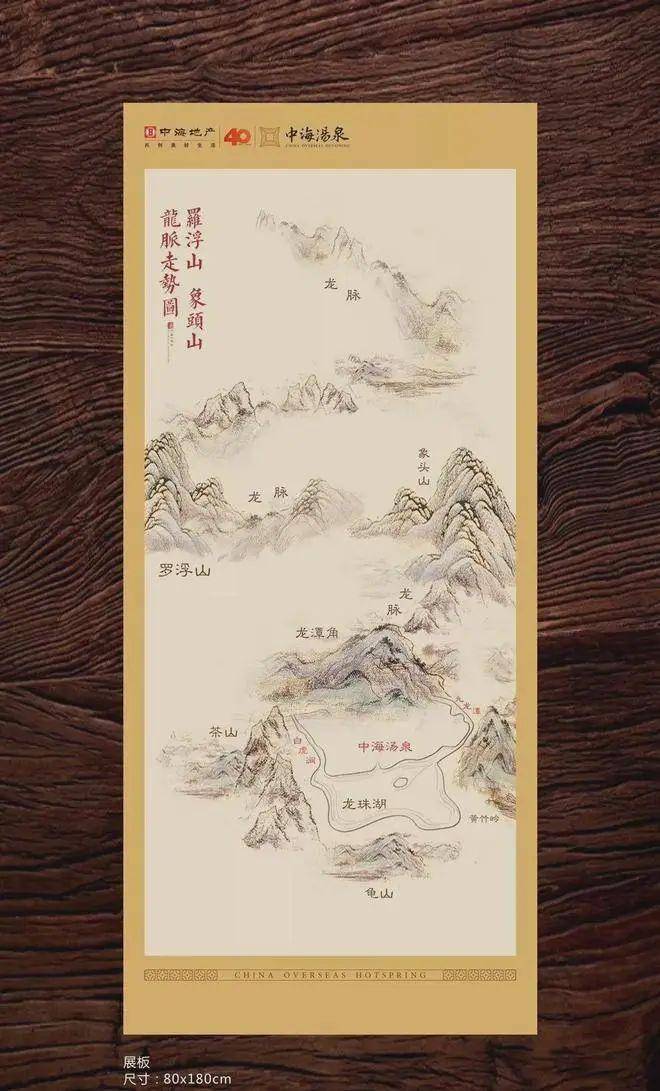 中海地产
共创美好生活
40
中海湯泉
CHINA OVERSEAS HOTSPRING
羅浮山 象頭山
龍脈走勢圖
龙脉
象头山
龙脉
罗浮山
龙脉
龙潭角
九龙潭
茶山
白虎涧
中海汤泉
龙珠湖
黄竹岭
龟山
CHINA OVERSEAS HOTSPRING
展板
尺寸：80x180cm